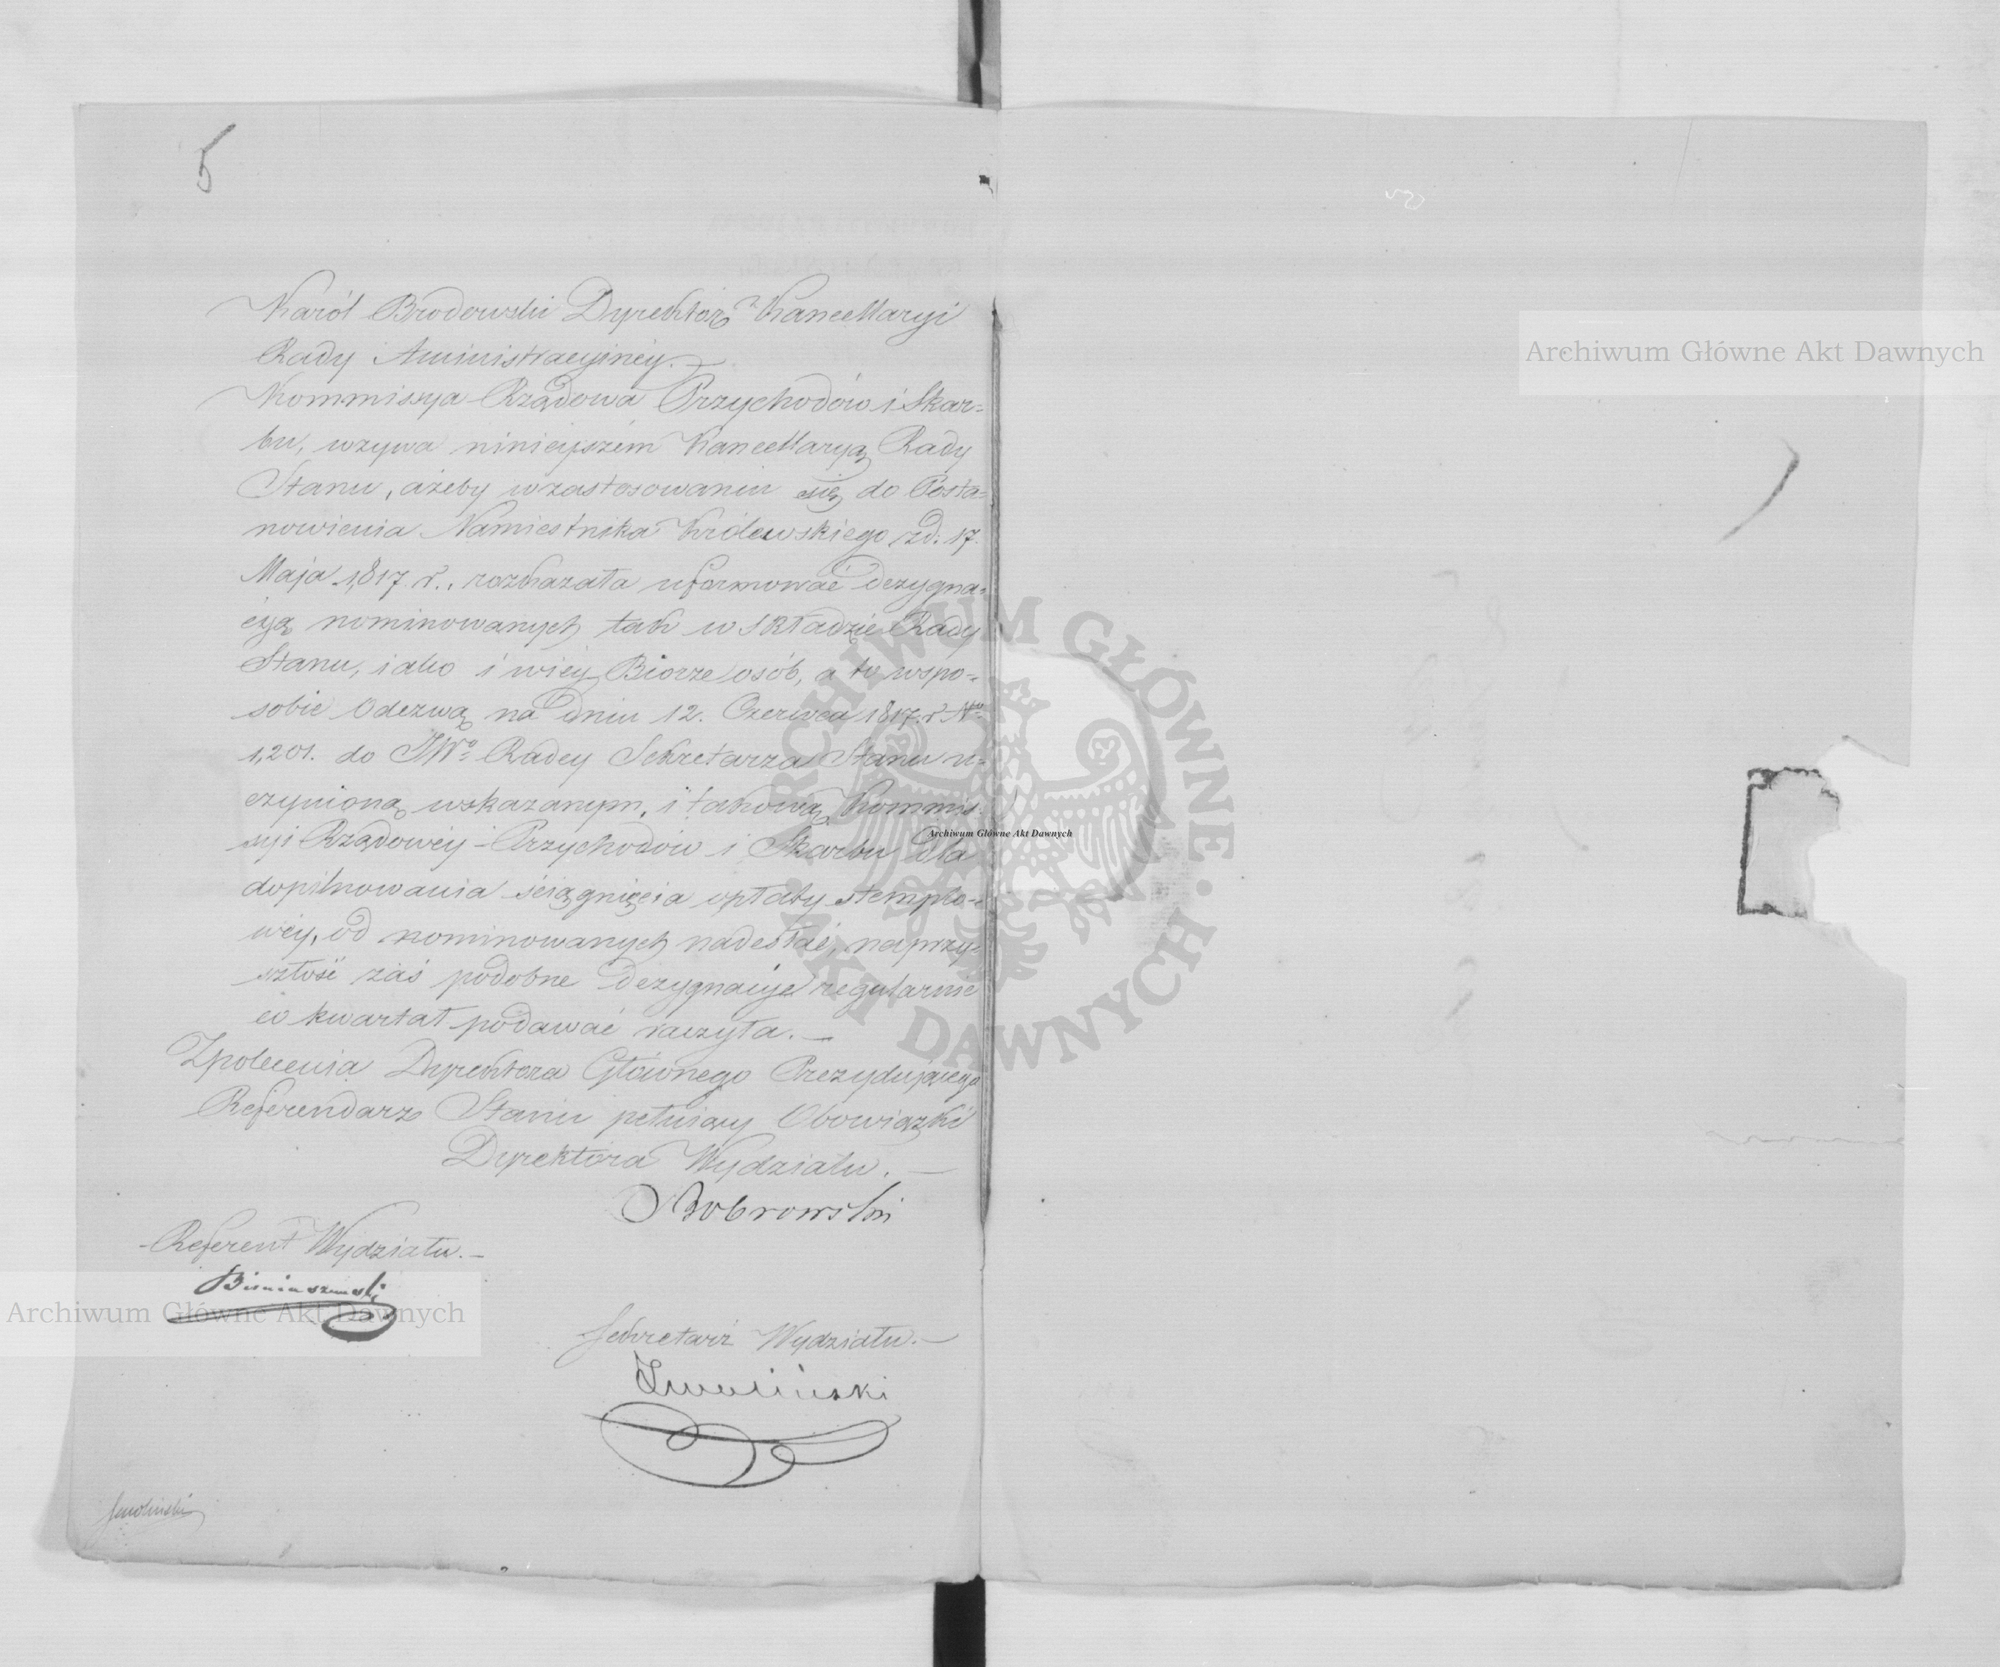 5
Karól Brodowski Dyrektor Kancellaryi
Rady Aministracyinéy.—
Kommissya Rządowa Przychodów i Skar=
bu, wzywa ninieyszém Kancellaryą Rady
Stanu, ażeby wzastosowaniu się do Posta=
nowienia Namiestnika Królewskiego zd. 17.
Maja 1,817. r., rozkazała uformować dezygna=
cyą nominowanych tak w składzie Rady
Stanu, iako i wiéy Biorze osób, a to wspo=
sobie Odezwą na dniu 12. Czerwca 1817. r. No
1,201. do JWo Radcy Sekretarza Stanu u=
czynioną wskazanym, i takową Kommis=
syi Rządowéy Przychodów i Skarbu dla
dopilnowania ściągnięcia opłaty stemplo=
wéy, od nominowanych nadesłać, naprzy=
szłość zaś podobne dezygnacye regularnie
co kwartał podawać raczyła.—
Zpolecenia Dyrektora Głównego Prezydującego
Referendarz Stanu pełniący Obowiązki
Dyrektora Wydziału.—
Bobrowski
Referent Wydziału.—
Sekretarz Wydziału.—
Smoliński
Archiwum Główne Akt Dawnych
Archiwum Główne Akt Dawnych
Archiwum Główne Akt Dawnych
ARCHIWUM GŁÓWNE · AKT DAWNYCH ·